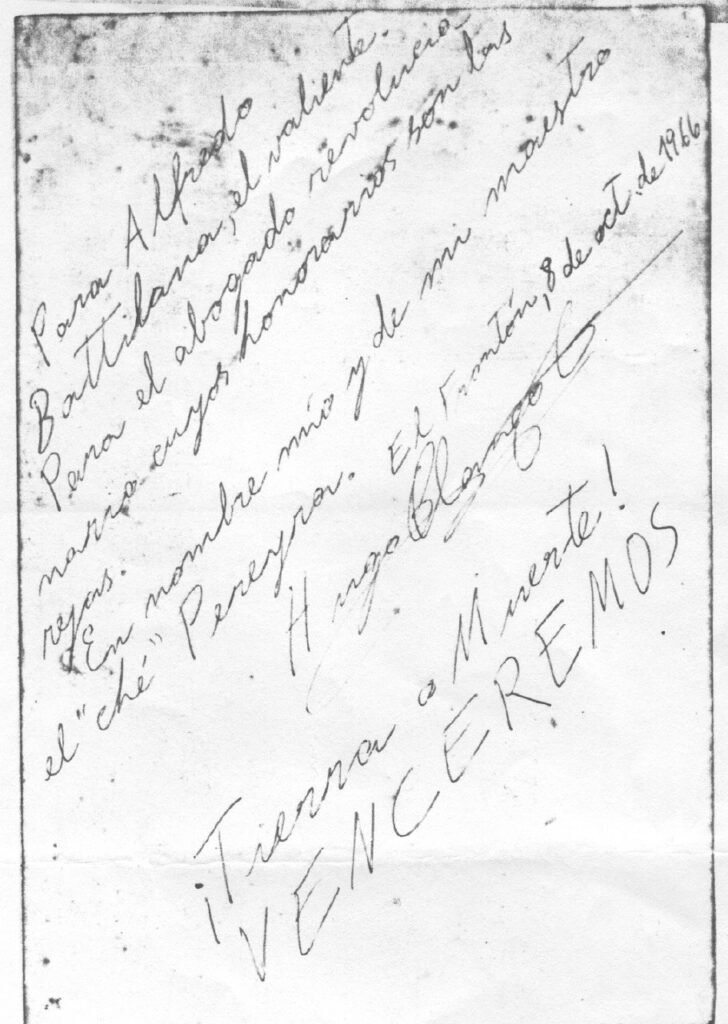 Para Alfredo
Battilana, el valiente.
Para el abogado revolucio
nario cuyos honorarios son las
rejas.
En nombre mío y de mi maestro
el "ché" Pereyra.
El Frontón, 8 de oct. de 1966
Hugo Blanco G
¡Tierra o Muerte!
VENCEREMOS